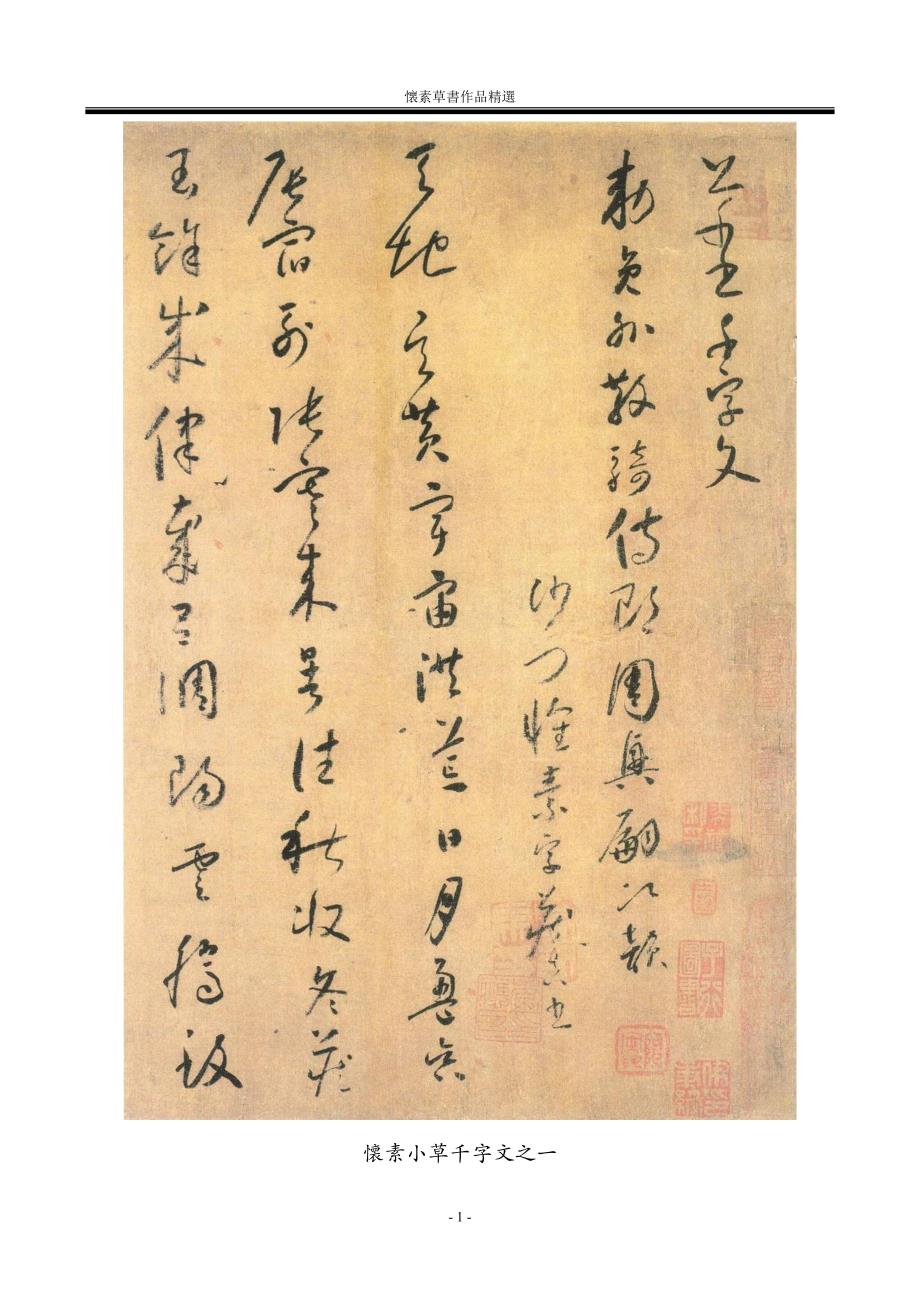 懷素草書作品精選
草書千字文
勅員外散騎侍郎周興嗣次韻
沙門懷素字藏真書
天地玄黃宇宙洪荒日月盈昃
辰宿列張寒来暑往秋收冬藏
閏餘成律歲呂調陽雲騰致
懷素小草千字文之一
- 1 -